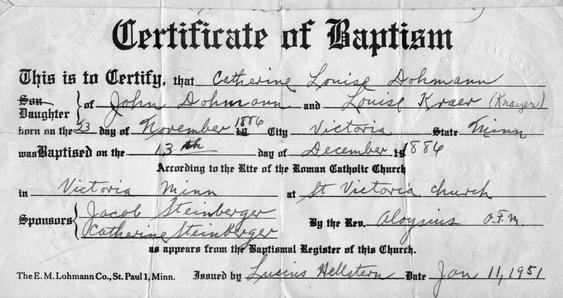 Certificate of Baptism
This is to Certify, that Catherine Louise Dohmann
Son
Daughter } of John Dohmann and Louise Kraer (Krayer)
born on the 23 day of November 1886 City Victoria State Minn
was Baptised on the 13th day of December, 1886
According to the Rite of the Roman Catholic Church
in Victoria Minn at St Victoria church
Sponsors { Jacob Steinberger
Catherine Steinberger } By the Rev. Aloysius O.F.M.
as appears from the Baptismal Register of this Church.
The E. M. Lohmann Co., St. Paul 1, Minn. Issued by Lucius Hellstern Date Jan 11, 1951